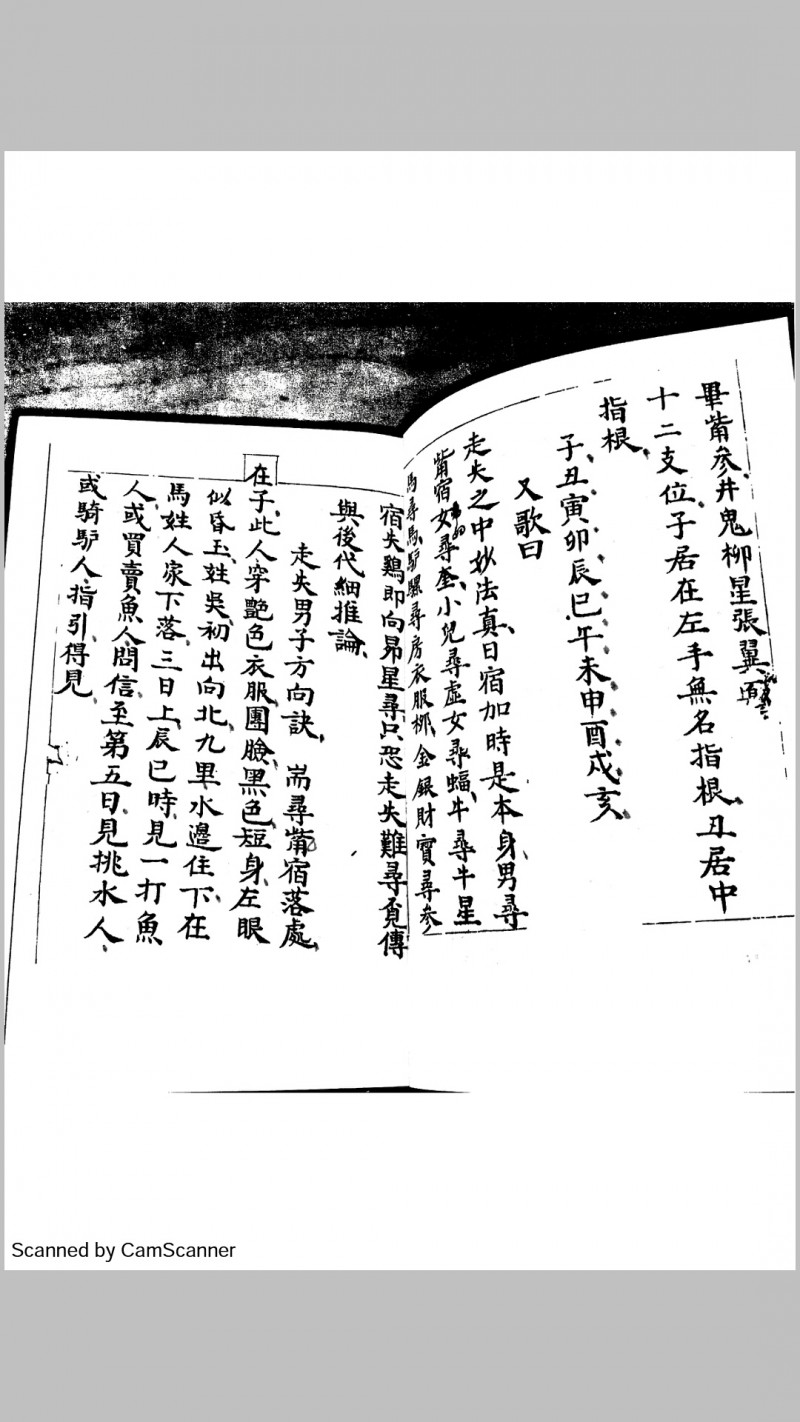 畢觜參井鬼柳星張翼
十二支位子居在左手無名指根丑居中
指根
子丑寅卯辰巳午未申酉戌亥
又歌曰
走失之中妙法真日宿加時是本身男尋
觜宿女尋奎小兒尋虛女尋蝠牛尋牛星
馬尋馬馿騾尋房衣服栁金銀財寶尋參
宿失鷄即向昴星尋只恐走失難尋覓傳
與後代細推論
走失男子方向訣 耑尋觜宿落處
在子此人穿艷色衣服團臉黑色短身左眼
似昏玉姓吳初出向北九里水邊住下在
馬姓人家下落三日上辰巳時見一打魚
人或買賣魚人問信至第五日見挑水人
或騎馿人指引得見
Scanned by CamScanner